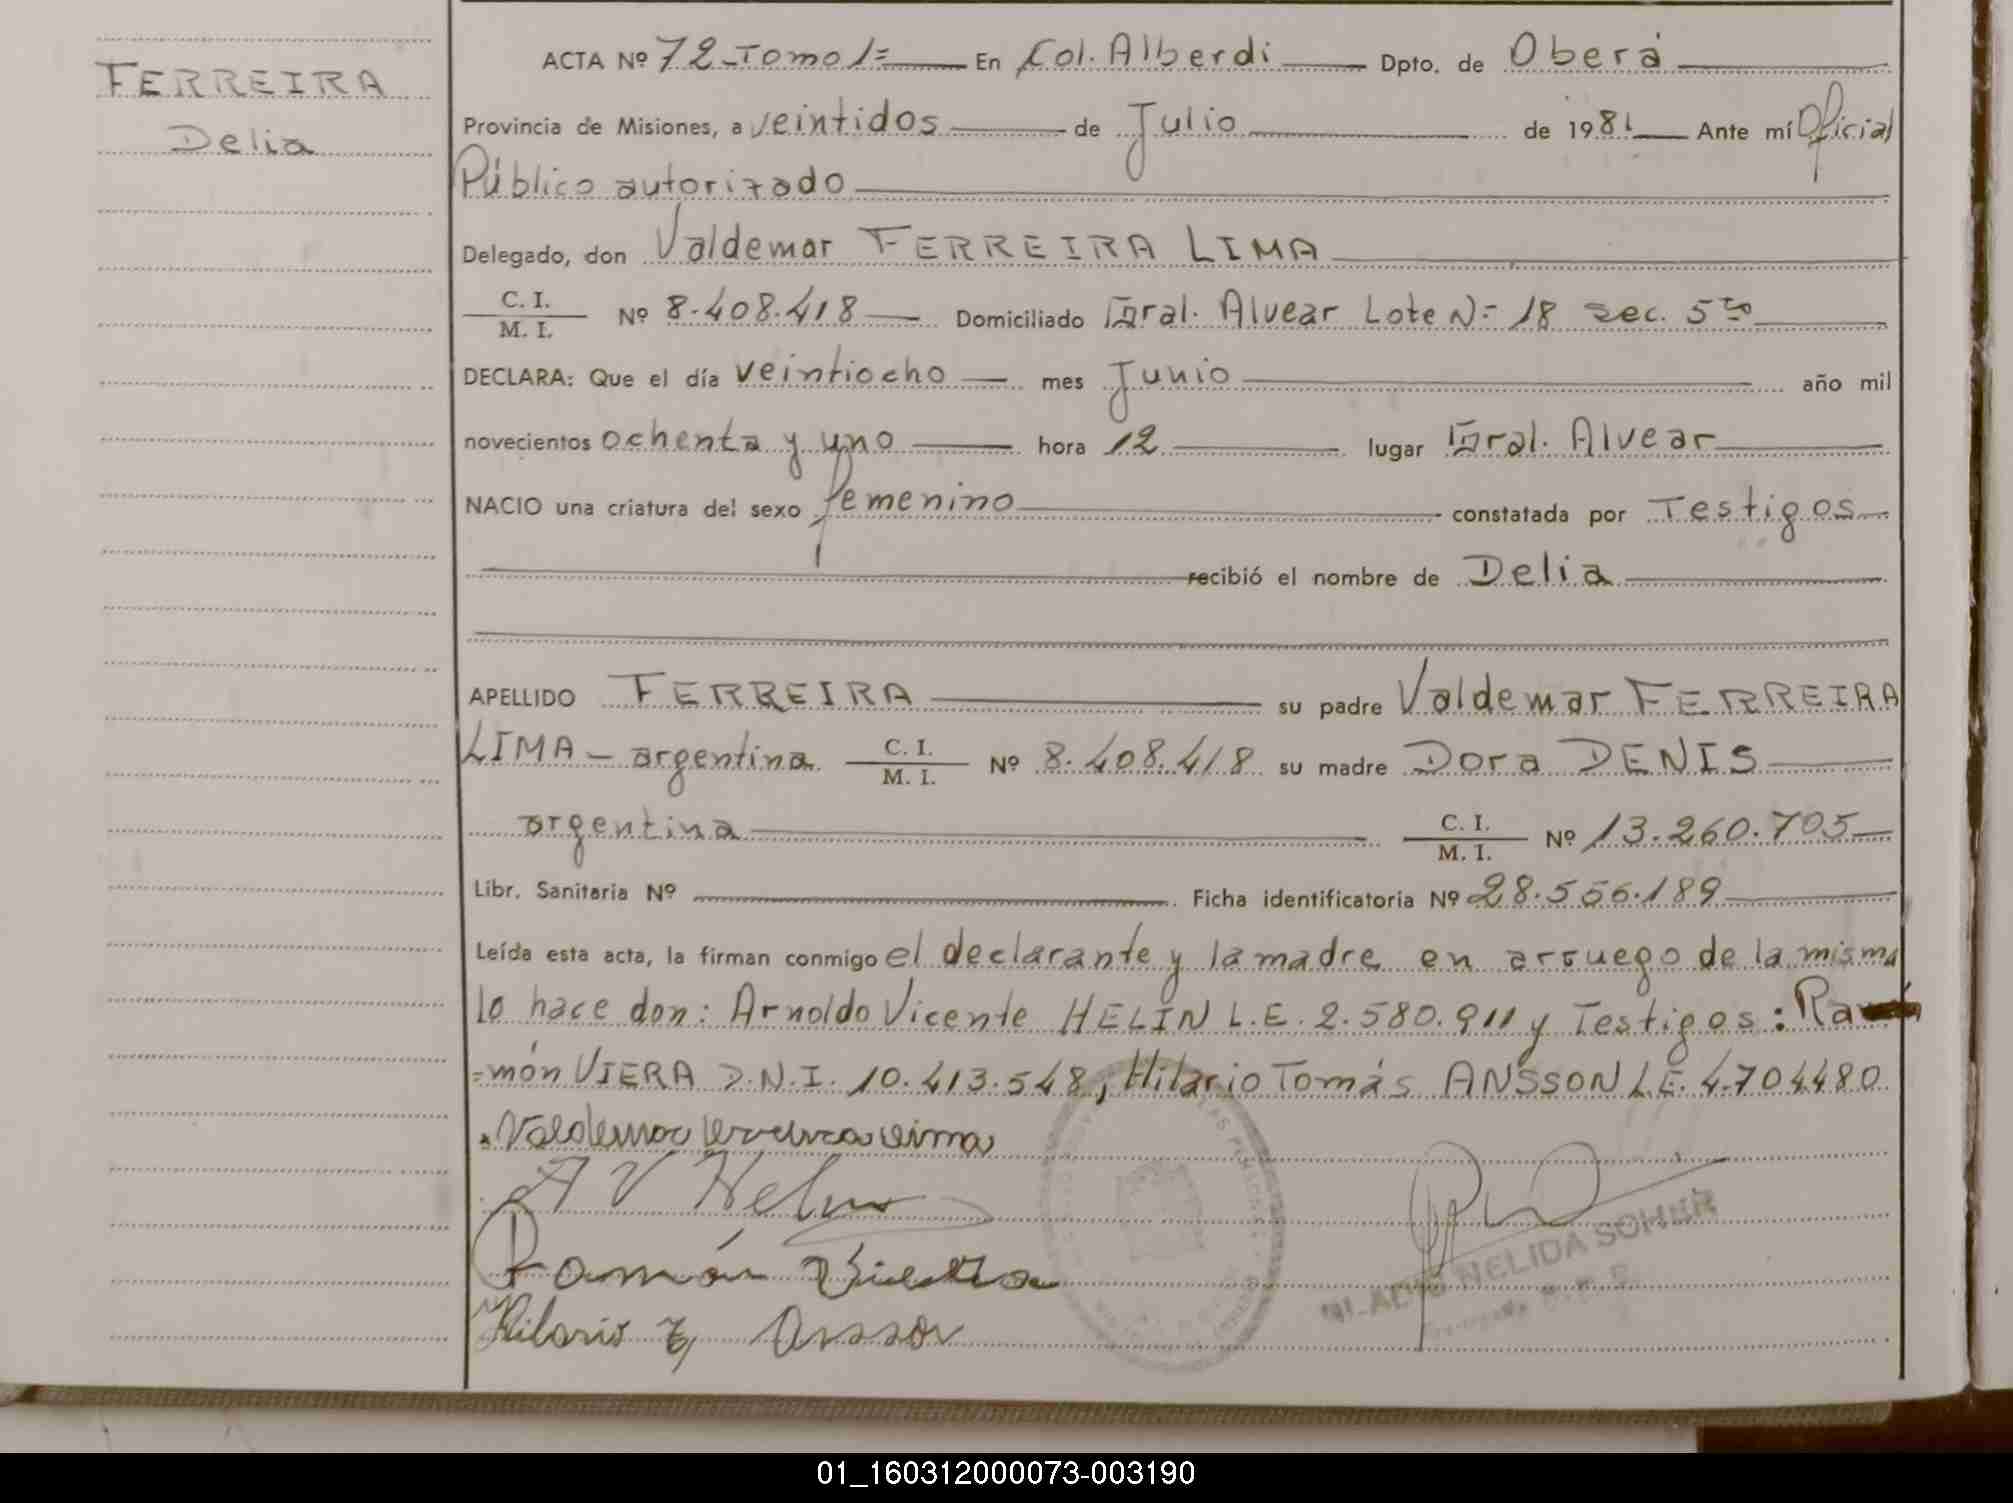 FERREIRA
Delia
ACTA Nº 72-Tomo 1= En Col. Alberdi Dpto. de Oberá
Provincia de Misiones, a veintidos de Julio de 1981 Ante mí Oficial
Público autorizado
Delegado, don Valdemar FERREIRA LIMA
C. I.
M. I. Nº 8.408.418 Domiciliado Gral. Alvear Lote N= 18 sec. 5ta
DECLARA: Que el día veintiocho mes Junio año mil
novecientos ochenta y uno hora 12 lugar Gral. Alvear
NACIO una criatura del sexo femenino constatada por Testigos
recibió el nombre de Delia
APELLIDO FERREIRA su padre Valdemar FERREIRA
LIMA - argentina C. I. M. I. Nº 8.408.418 su madre Dora DENIS
argentina C. I. M. I. Nº 13.260.705
Libr. Sanitaria Nº Ficha identificatoria Nº 28.556.189
Leída esta acta, la firman conmigo el declarante y la madre en arruego de la misma
lo hace don: Arnoldo Vicente HELIN L.E. 2.580.911 y Testigos: Ra
=món VIERA D.N.I. 10.413.548, Hilario Tomás ANSSON L.E. 4.704480
Valdemar Ferreira Lima
A V Helin
Ramón Vierra
Hilario T, Ansson
NELIDA SOHUR
01_160312000073-003190